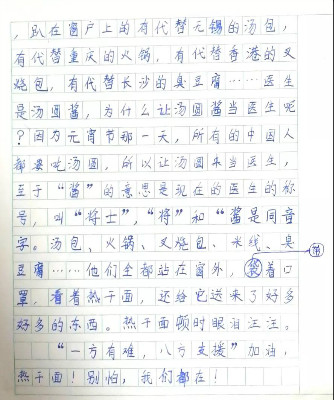 ，趴在窗户上的有代替无锡的汤包，
有代替重庆的火锅，有代替香港的叉
烧包，有代替长沙的臭豆腐……医生
是汤圆酱，为什么让汤圆酱当医生呢
？因为元宵节那一天，所有的中国人
都要吃汤圆，所以让汤圆来当医生，
至于“酱”的意思是现在的医生的称
号，叫“将士”，“将”和“酱是同音
字。汤包、火锅、叉烧包、米线、臭
豆腐……他们全都站在窗外，戴着口
罩，看着热干面，还给它送来了好多
好多的东西。热干面顿时眼泪汪汪。
“一方有难，八方支援”加油，
热干面！别怕，我们都在！